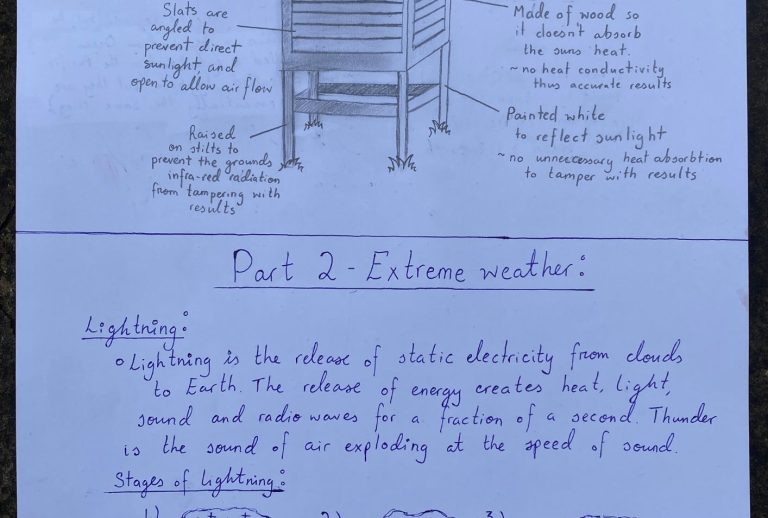 Slats are
angled to
prevent direct
sunlight, and
open to allow air flow
Raised
on stilts to
prevent the grounds
infra-red radiation
from tampering with
results
Made of wood so
it doesn't absorb
the suns heat.
~ no heat conductivity
thus accurate results
Painted white
to reflect sunlight
~ no unneccessary heat absorbtion
to tamper with results
Part 2 - Extreme weather:
Lightning:
Lightning is the release of static electricity from clouds
to Earth. The release of energy creates heat, light,
sound and radio waves for a fraction of a second. Thunder
is the sound of air exploding at the speed of sound.
Stages of lightning:
1) 2) 3)